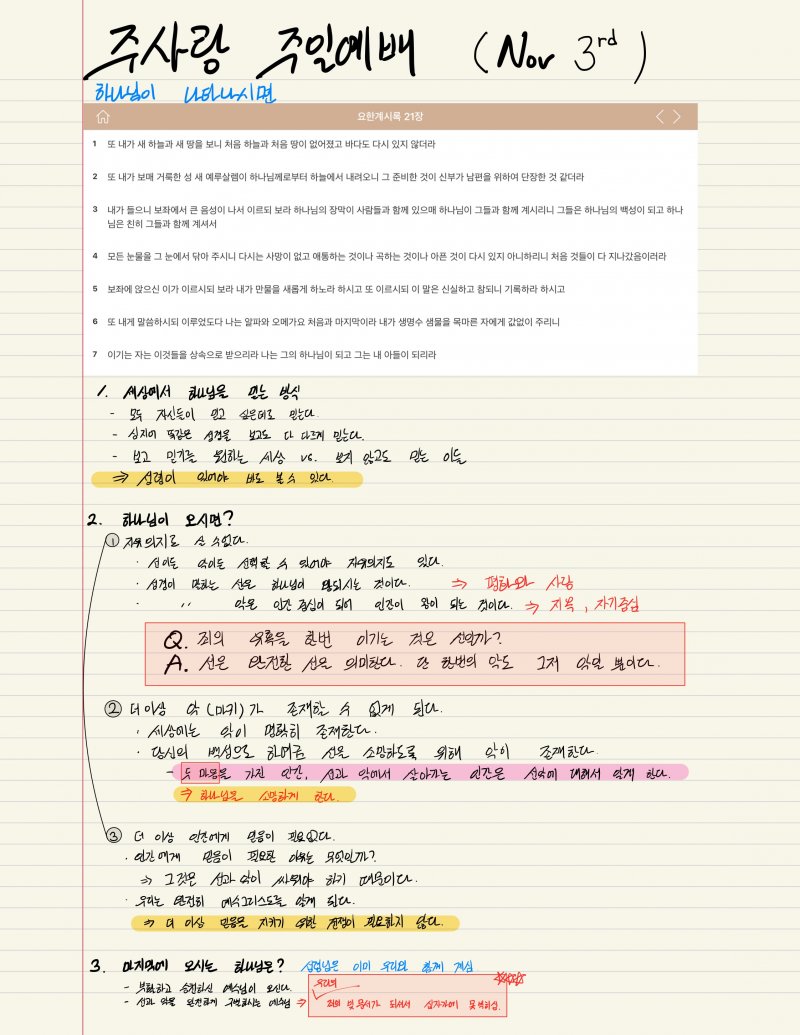 주사랑 주일예배 (Nov 3rd)
하나님이 나타나시면
요한계시록 21장
1 또 내가 새 하늘과 새 땅을 보니 처음 하늘과 처음 땅이 없어졌고 바다도 다시 있지 않더라
2 또 내가 보매 거룩한 성 새 예루살렘이 하나님께로부터 하늘에서 내려오니 그 준비한 것이 신부가 남편을 위하여 단장한 것 같더라
3 내가 들으니 보좌에서 큰 음성이 나서 이르되 보라 하나님의 장막이 사람들과 함께 있으매 하나님이 그들과 함께 계시리니 그들은 하나님의 백성이 되고 하나
님은 친히 그들과 함께 계셔서
4 모든 눈물을 그 눈에서 닦아 주시니 다시는 사망이 없고 애통하는 것이나 곡하는 것이나 아픈 것이 다시 있지 아니하리니 처음 것들이 다 지나갔음이러라
5 보좌에 앉으신 이가 이르시되 보라 내가 만물을 새롭게 하노라 하시고 또 이르시되 이 말은 신실하고 참되니 기록하라 하시고
6 또 내게 말씀하시되 이루었도다 나는 알파와 오메가요 처음과 마지막이라 내가 생명수 샘물을 목마른 자에게 값없이 주리니
7 이기는 자는 이것들을 상속으로 받으리라 나는 그의 하나님이 되고 그는 내 아들이 되리라
1. 세상에서 하나님을 믿는 방식
- 모두 자신들이 믿고 싶은데로 믿는다.
- 심지어 똑같은 성경을 보고도 다 다르게 믿는다.
- 보고 믿기를 원하는 세상 vs. 보지 않고도 믿는 이들
⇒ 성령이 있어야 바로 볼 수 있다.
2. 하나님이 오시면?
① 자유의지로 살 수 없다.
· 선이든 악이든 선택할 수 있어야 자유의지도 있다.
· 성경이 말하는 선은 하나님이 왕되시는 것이다. ⇒ 평화와 사랑
· 〃 악은 인간 중심이 되어 인간이 왕이 되는 것이다. ⇒ 지옥, 자기중심
Q. 죄의 유혹을 한번 이기는 것은 선인가?
A. 선은 완전한 선을 의미한다. 단 한번의 악도 그저 악일 뿐이다.
② 더 이상 악(마귀)가 존재할 수 없게 된다.
· 세상에는 악이 명확히 존재한다.
· 당신의 백성으로 하여금 선을 소망하도록 위해 악이 존재한다.
- 두 마음을 가진 인간, 선과 악에서 살아가는 인간은 선악에 대해서 알게 한다.
⇒ 하나님을 소망하게 한다.
③ 더 이상 인간에게 믿음이 필요없다.
· 인간에게 믿음이 필요한 이유는 무엇인가?
⇒ 그것은 선과 악이 싸워야 하기 때문이다.
· 우리는 완전히 예수그리스도를 알게 된다.
⇒ 더 이상 믿음을 지키기 위한 전쟁이 필요하지 않다.
3. 마지막에 오시는 하나님은? 성령님은 이미 우리와 함께 계심
- 부활하고 승천하신 예수님이 오신다.
우리의
- 선과 악을 완전하게 구별하시는 예수님 ⇒ 죄의 빛 용서가 되셔서 십자가에 못 박히심.